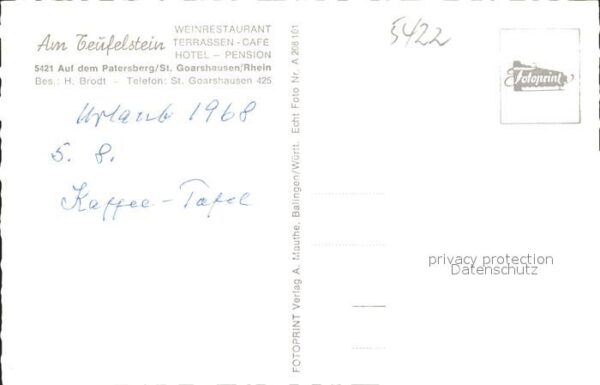 Am Teufelstein
WEINRESTAURANT
TERRASSEN - CAFÉ
HOTEL - PENSION
5421 Auf dem Patersberg/St. Goarshausen/Rhein
Bes.: H. Brodt - Telefon: St. Goarshausen 425
Urlaub 1968
5. 8.
Kaffee - Tafel
FOTOPRINT Verlag A. Mauthe, Balingen/Württ. Echt Foto Nr. A 268 101
5422
Fotoprint
privacy protection
Datenschutz